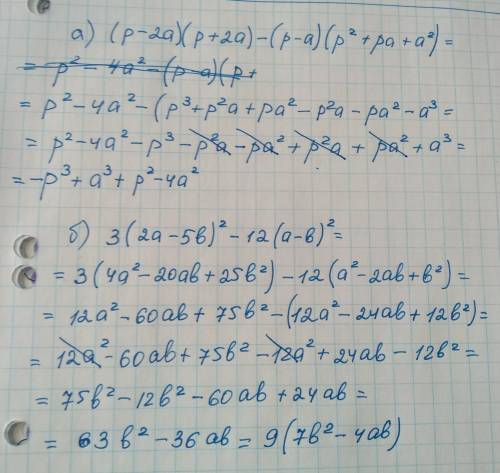 а) (p-2a)(p+2a)-(p-a)(p²+pa+a²)=
= p²-4a²-(p-a)(p+
= p²-4a²-(p³+p²a+pa²-p²a-pa²-a³=
= p²-4a²-p³-p²a-pa²+p²a+pa²+a³=
=-p³+a³+p²-4a²
б) 3(2a-5в)²-12(a-в)²=
=3(4a²-20aв+25в²)-12(a²-2aв+в²)=
= 12a²-60aв+75в²-(12a²-24aв+12в²)=
= 12a²-60aв+75в²-12a²+24aв-12в²=
= 75в²-12в²-60aв+24aв=
= 63в²-36aв=9(7в²-4aв)